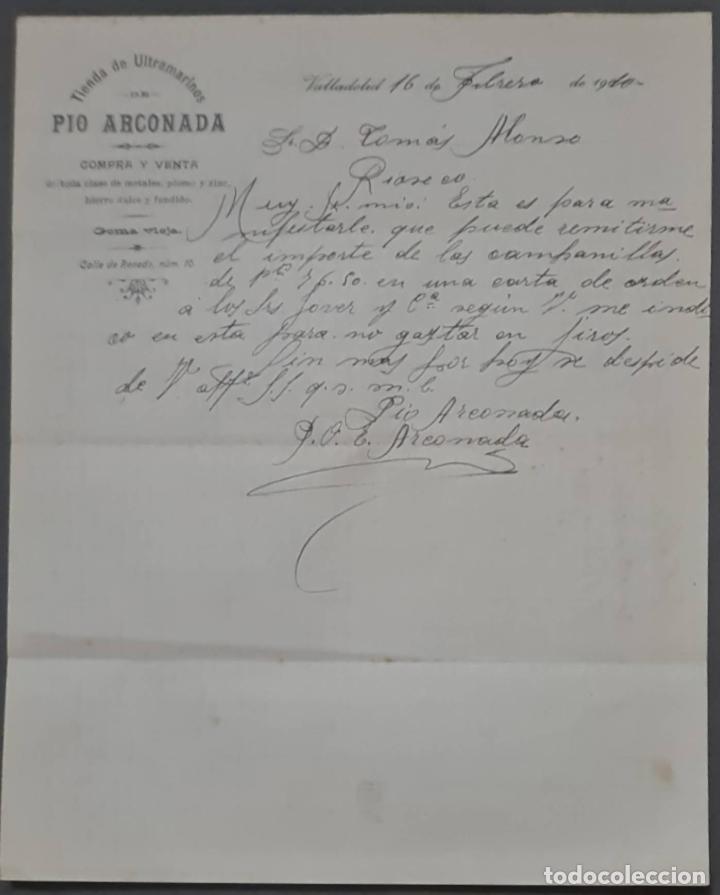 Tienda de Ultramarinos
DE
PIO ARCONADA
COMPRA Y VENTA
de toda clase de metales, plomo y zinc,
hierro dulce y fundido.
Goma vieja.
Calle de Renedo, núm. 10.
Valladolid 16 de Febrero de 1910
Sr. D. Tomás Alonso
Rioseco
Muy Sr. mio: Esta es para ma
nifestarle que puede remitirme
el importe de las campanillas
de pts en una carta de orden
á los Srs Jover y Cª según V. me indi
co en esta para no gastar en jiros.
Sin mas por hoy se despide
de V. affº S.S. q. s. m. b.
Pio Arconada.
P.O. E. Arconada
todocoleccion.net